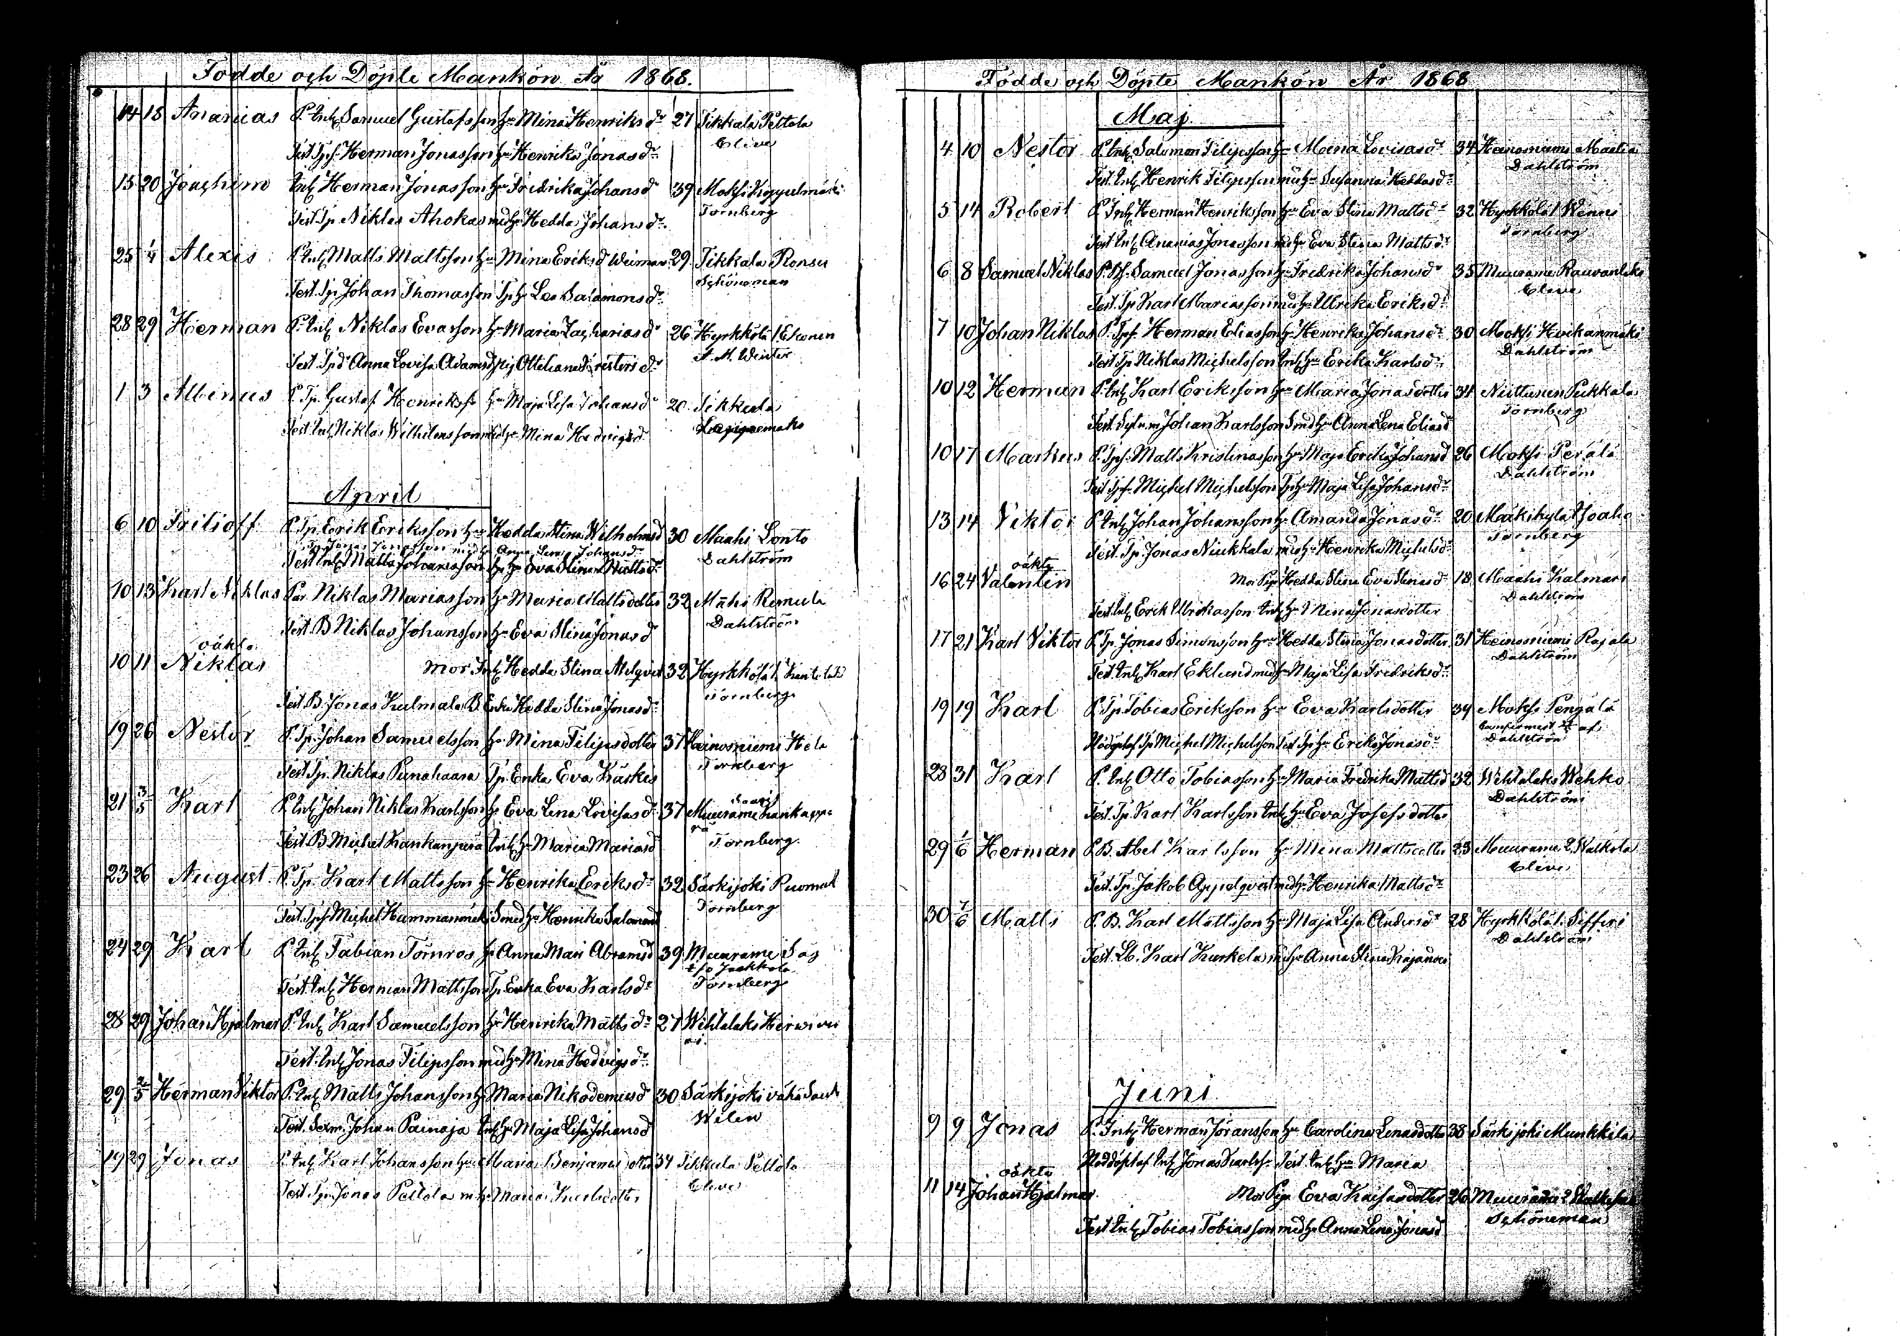 Födde och Döpte Mankön År 1868.
14 15 Ananias P. Inh. Samuel Gustafsson h. Mina Henriksdr 27 Tikkala Peltola
Test. Tp. Herman Jonasson h. Henrika Jonasdr Clive
15 20 Joachim Inh. Herman Jonasson h. Fredrika Johansdr 39 Moksi
Test. Tp. Niklas Ahokas med h. Hedda Johansdr Tornberg
25 1/4 Alexis P. Inh. Matts Mattsson h. Mina Eriksd 29 Tikkala Ronsu
Test. Tp. Johan Thomasson Tp h. Lea Salamonsdr Schöneman
28 29 Herman P. Inh. Niklas Evasson h. Maria Zachariasdr 26 Hyrkkölä 1 Ekonen
Test. Tpd Anna Lovisa Adamsd Ottiliana Kristersdr A. M. Winter
1 3 Albinus P. Tp. Gustaf Henriksf h. Maja Lisa Johansdr 20 Tikkala
Test. Inh. Niklas Wilhelmsson med h. Mina Hedvigsd
April
6 10 Fritioff P. Tp. Eerik Eeriksson h. Hedda Stina Wilhelmsd 30 Maahi Sonto
Jonasson med h. Anna Lena Johansd
Test. Inh. Matts Johansson h. Eva Stina Mattsdr Dahlström
10 13 Karl Niklas Par Niklas Mariasson h. Maria Mattsdotter 32 Mähi Remula
Test. B. Niklas Johansson h. Eva Stina Jonasdr Dahlström
oäkta
10 11 Niklas Mor Inh. Hedda Stina Almqvist 32 Hyrkkölä 1
Test. B. Jonas Kulmala B. Enka Hedda Stina Jonasdr Tornberg
19 26 Nestor P. Tp. Johan Samuelsson h. Mina Filipsdotter 37 Hainosniemi Hela
Test. Tp. Niklas Punahaara Tp. Enka Eva Käskis Tornberg
21 3/5 Karl P. Inh. Johan Niklas Karlsson h. Eva Lena Lovisasdr 37 Muurame
Test. B. Michel Kankanperä Inh. h. Maria Mariasd Tornberg
23 26 August P. Tp. Karl Mattsson h. Henrika Eriksdr 32 Särkijoki Ruomala
Test. Tp. Michel Hammanmäki Smed h. Henrika Salamonsd Tornberg
24 29 Karl P. Inh. Fabian Törnros h. Anna Mari Abramsd 39 Muurame Såg
t/o Jaakkola
Test. Inh. Herman Mattsson Tp. Enka Eva Karlsdr Tornberg
28 29 Johan Hjalmar P. Inh. Karl Samuelsson h. Henrika Mattsdr 27 Wihtalaks
Test. Inh. Jonas Filipsson med h. Mina Hedvigsdr
29 2/5 Herman Viktor P. Inh. Matts Johansson h. Maria Nikodemusd 30 Särkijoki
Test. Sexm. Johan Painaja Inh. h. Maja Lisa Johansd Welen
19 29 Jonas P. Inh. Karl Johansson h. Maria Benjamsdotter 34 Tikkala Peltola
Test. Tp. Jonas Peltola m. h. Maria Clive
Födde och Döpte Mankön År 1868
Maj
4 10 Nestor P. Inh. Salomon Filipsson h. Maria Lovisasdr 34 Heinosniemi Mattila
Test. Inh. Henrik Filipsson med h. Susanna Heddasdr Dahlström
5 14 Robert P. Inh. Herman Henriksson h. Eva Stina Mattsdr 32 Hyrkkölä 1 Wenni
Test. Inh. Ananias Jonasson med h. Eva Stina Mattsdr Tornberg
6 8 Samuel Niklas P. Samuel Jonasson h. Fredrika Johansdr 35 Muurame Rauvanlaks
Test. Tp. Karl Mariasson med h. Ulrika Eriksdr Clive
7 10 Johan Niklas P. Tp. Herman Eliasson h. Henrika Johansdr 30 Moksi
Test. Tp. Niklas Michelsson Inh. h. Eerika Karlsdr Dahlström
10 12 Herman P. Inh. Karl Eriksson h. Maria Jonasdotter 34 Niittunen Pukkala
Test. Johan Karlsson Smed h. Anna Lena Eliasd Tornberg
10 17 Markus P. Tp. Matts Kristinasson h. Maja Eerika Johansd 26 Moksi Perälä
Test. Tp. Michel Michelsson Tp h. Maja Lisa Johansdr Dahlström
13 14 Viktor P. Inh. Johan Johansson h. Amanda Jonasdr 20 Mäkikylä
Test. Tp. Jonas Niukkala med h. Henrika Michelsdr Tornberg
oäkta
16 24 Valentin Mor Pig. Hedda Stina Eva Stinasdr 18 Maahi Kalmari
Test. Inh. Erik Ulrikasson Inh. h. Mina Jonasdotter Dahlström
17 21 Karl Viktor P. Tp. Jonas Simonsson h. Hedda Stina Jonasdotter 31 Heinosniemi Rajala
Test. Inh. Karl Eklund med h. Maja Lisa Fredriksdr Dahlström
19 19 Karl P. Tp. Tobias Eriksson h. Eva Karlsdotter 34 Moksi Pengälä
Nödöptaf Tp. Michel Michelsson Test Tp h. Erika Jonasdr af Dahlström
28 31 Karl P. Inh. Otto Tobiasson h. Maria Fredrika Mattsd 32 Wihtalaks Wehko
Test. Tp. Karl Karlsson Inh. h. Eva Josefsdotter Dahlström
29 1/6 Herman P. B. Abel Karlsson h. Mina Mattsdotter 23 Muurame 2 Walkola
Test. Tp. Jakob Appelqvist med h. Henrika Mattsdr Clive
30 7/6 Matts P. B. Karl Mattsson h. Maja Lisa Andersdr 28 Hyrkkölä 1 Sifferi
Test. Karl Kurkela med h. Anna Stina Kajander Dahlström
Juni
9 9 Jonas P. Inh. Herman Göransson h. Carolina Lenasdotter 38 Särkijoki Munkkila
Nöddöptaf Inh. Jonas Karlsf. Test. Inh. h. Maria
oäkta
11 14 Johan Hjalmar Mor Pig. Eva Kaisasdotter 26 Muurame 2
Test. Inh. Tobias Tobiasson med h. Anna Lena Jonasd Schöneman